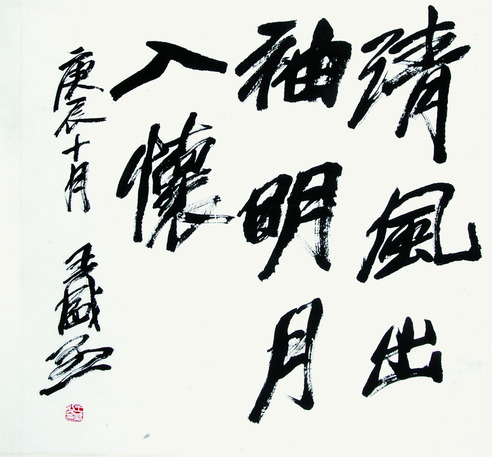 清風出
袖明月
入懷
庚辰十月